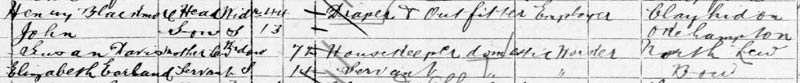 Henry Blackmore Head Wid. 44 Draper & Outfitter Employer Clayhidon
John Son S 13 Okehampton
Susan Davis Mother Law Widow 74 Housekeeper domestic Worker North Lew
Elizabeth Earland Servant S 14 Servant " " Bow